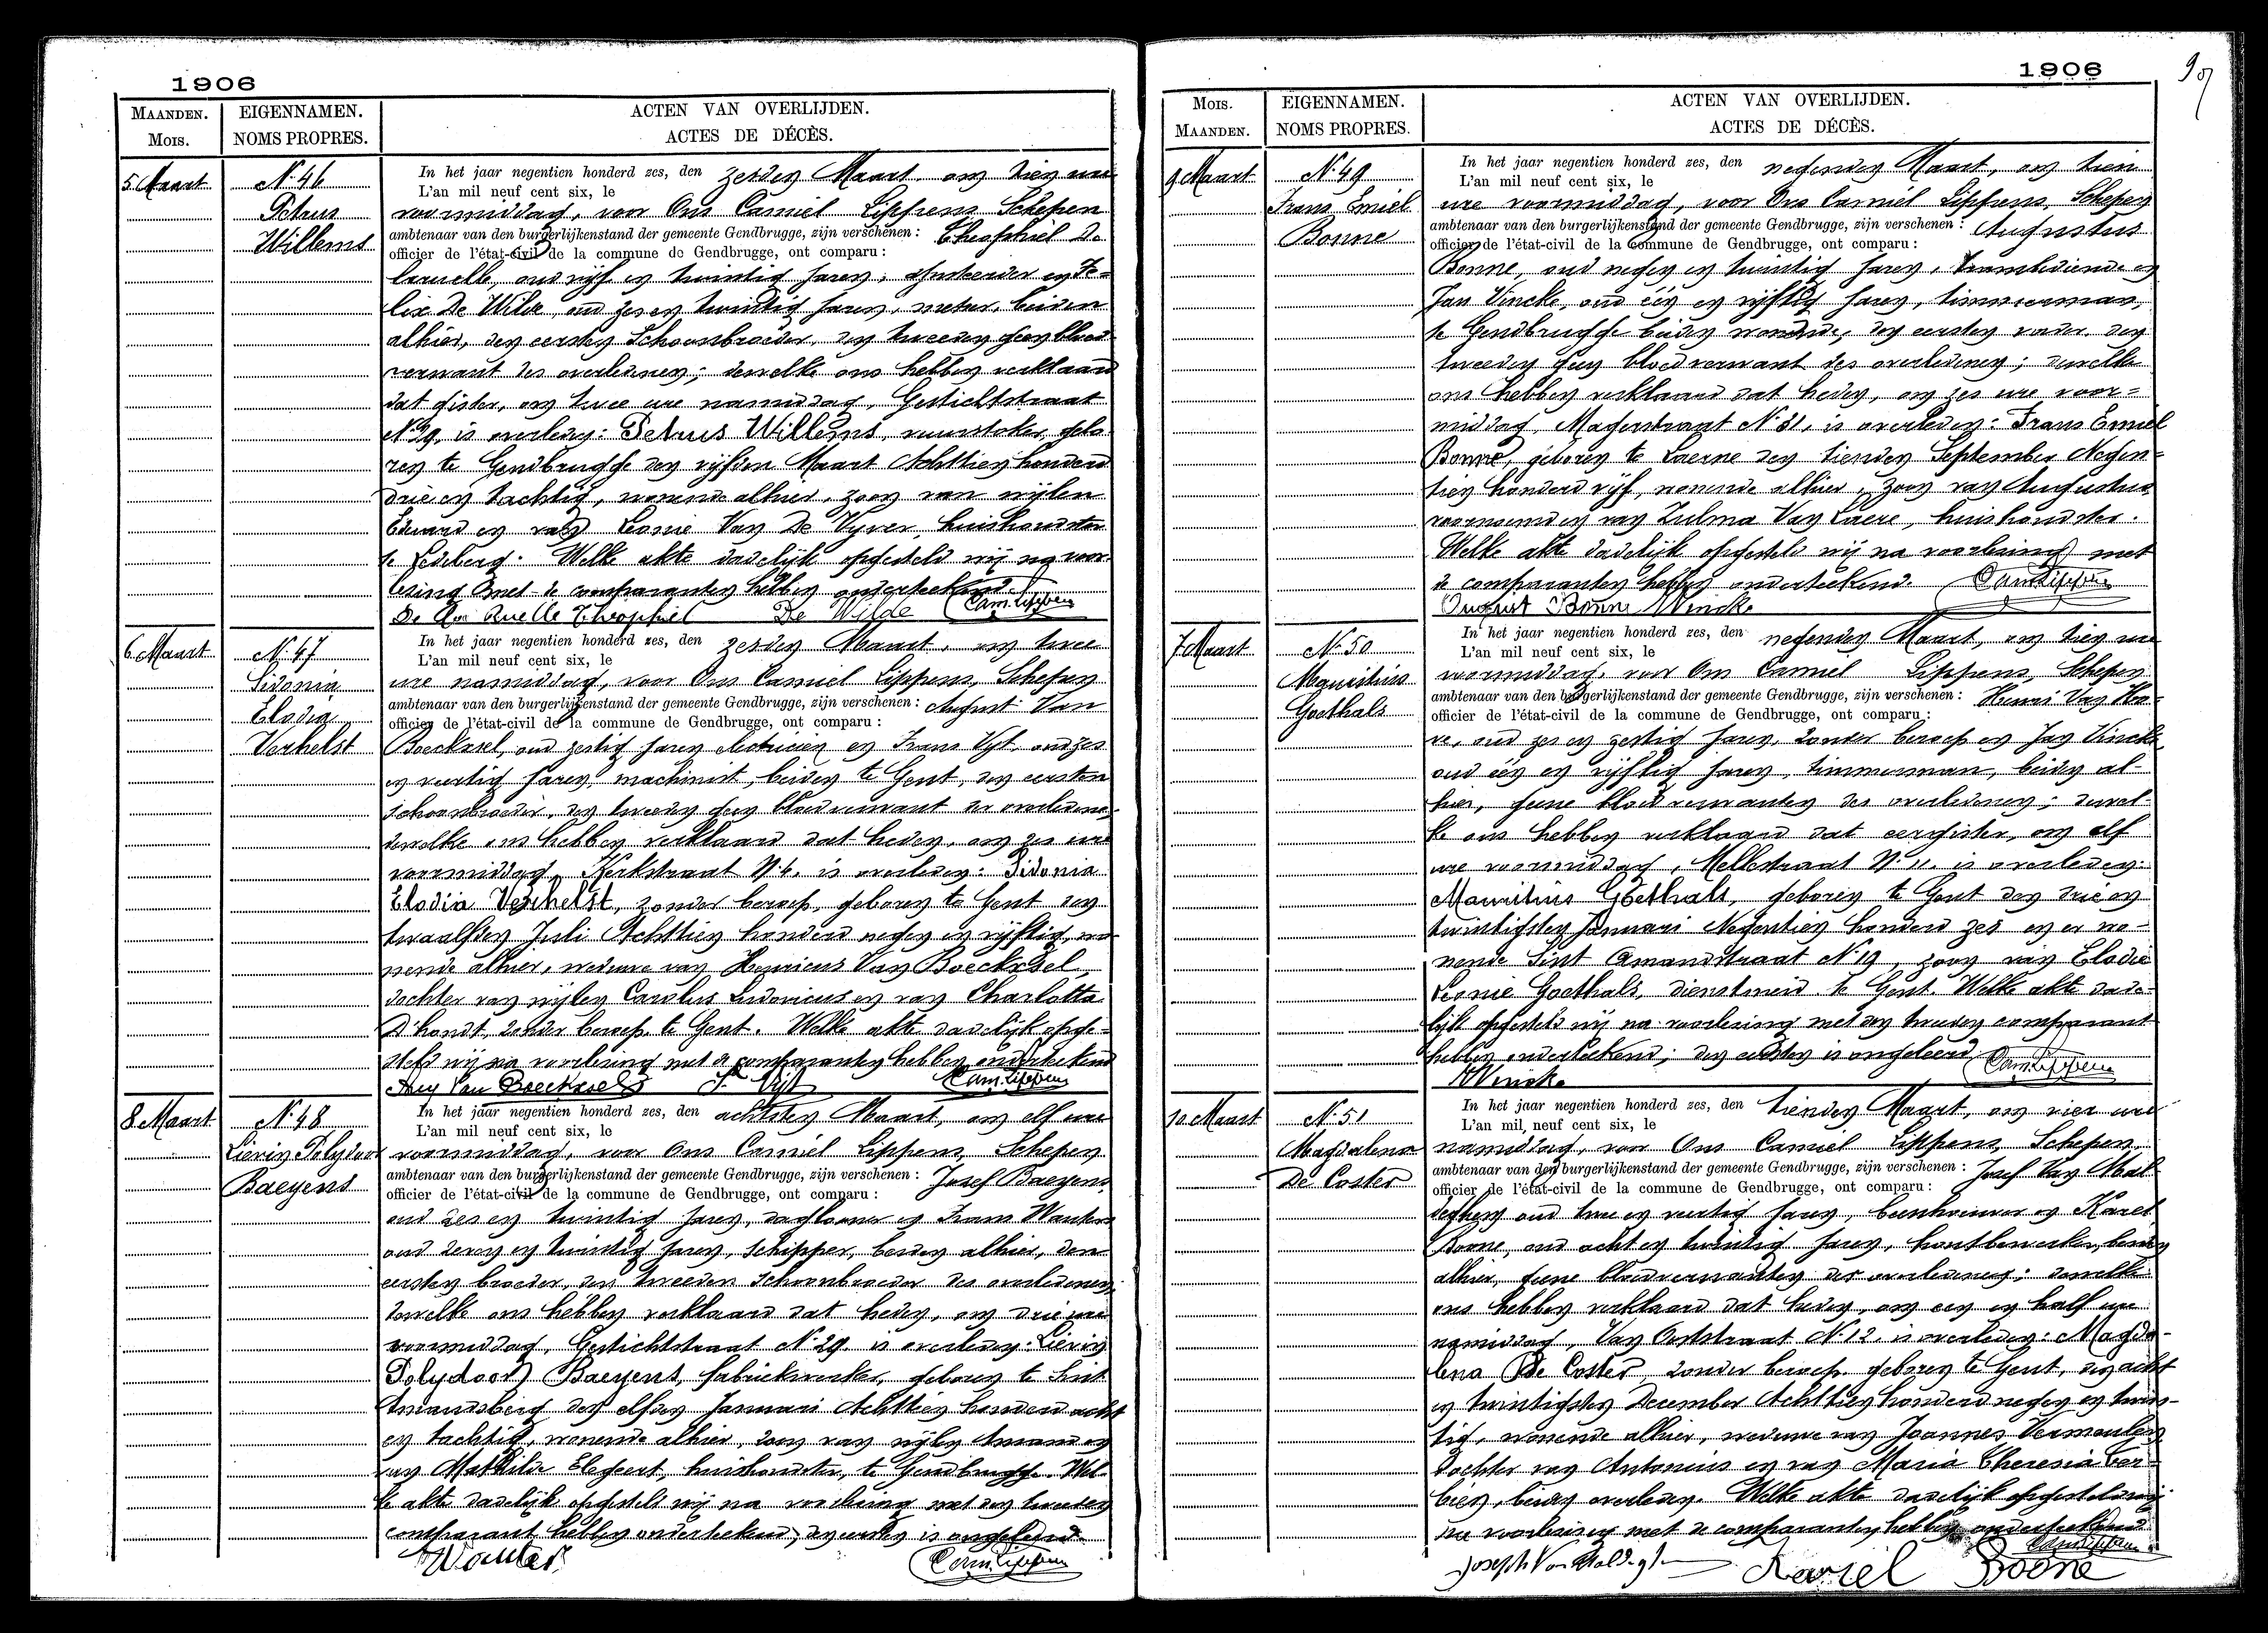 1906
MAANDEN. EIGENNAMEN. ACTEN VAN OVERLIJDEN.
MOIS. NOMS PROPRES. ACTES DE DÉCÈS.
5 Maart
N. 46
Petrus
Willems
In het jaar negentien honderd zes, den zesden Maart, om tien ure
L'an mil neuf cent six, le
voormiddag, voor Ons Camiel Lippens, Schepen
ambtenaar van den burgerlijkenstand der gemeente Gendbrugge, zijn verschenen : Theophiel De
officier de l'état-civil de la commune de Gendbrugge, ont comparu :
oud vijf en twintig jaren, en Fe-
lix De Wilde, oud zes en twintig jaren, beiden
alhier, den eersten Schoonbroeder, den tweeden geen bloed
verwant des overledenen; dewelke ons hebben verklaard
dat gister, om twee ure namiddag, Gestichtstraat
N. 29, is overleden: Petrus Willems, vuurstoker, gebo-
ren te Gendbrugge den vijfden Maart Achttien honderd
drie en tachtig, wonende alhier, zoon van wijlen
Eduard en van Leonie Van De Vyver, huishoudster
te Ledeberg. Welke akte dadelijk opgesteld wij na voor-
lezing met de comparanten hebben onderteekend.
Theophiel De Wilde Cam. Lippens
6 Maart
N. 47
Sidonia
Elodia
Verhelst
In het jaar negentien honderd zes, den zesden Maart, om twee
L'an mil neuf cent six, le
ure namiddag, voor Ons Camiel Lippens, Schepen
ambtenaar van den burgerlijkenstand der gemeente Gendbrugge, zijn verschenen : August Van
officier de l'état-civil de la commune de Gendbrugge, ont comparu :
Boecksel, oud zestig jaren electricien en Frans Vyt, oud zes
en veertig jaren, machinist, beiden te Gent, den eersten
schoonbroeder, den tweeden geen bloedverwant der overledene;
dewelke ons hebben verklaard dat heden, om zes ure
voormiddag, Kerkstraat N. 4, is overleden: Sidonia
Elodia Verhelst, zonder beroep, geboren te Gent den
twaalfden Juli Achttien honderd negen en vijftig, wo-
nende alhier, weduwe van Henricus Van Boecksel,
dochter van wijlen Carolus Ludovicus en van Charlotta
D'hondt, zonder beroep, te Gent. Welke akte dadelijk opge-
steld wij na voorlezing met de comparanten hebben onderteekend
Aug Van Boecksel F. Vijt Cam. Lippens
8 Maart
N. 48
Lievin Polydoor
Baeyens
In het jaar negentien honderd zes, den achtsten Maart, om elf ure
L'an mil neuf cent six, le
voormiddag, voor Ons Camiel Lippens, Schepen
ambtenaar van den burgerlijkenstand der gemeente Gendbrugge, zijn verschenen : Josef Baeyens,
officier de l'état-civil de la commune de Gendbrugge, ont comparu :
oud zes en twintig jaren, dagloner en Frans Wauters
oud zeven en twintig jaren, schipper, beiden alhier, den
eersten broeder, den tweeden schoonbroeder des overledenen;
dewelke ons hebben verklaard dat heden, om drie ure
voormiddag, Gestichtstraat N. 29, is overleden: Lievin
Polydoor Baeyens, fabriekwerker, geboren te Sint
Amandsberg den elfden Januari Achttien honderd acht
en tachtig, wonende alhier, zoon van wijlen Amand en
van Mathilde huishoudster, te Gendbrugge. Wel-
ke akte dadelijk opgesteld wij na voorlezing met den tweeden
comparant hebben onderteekend; den eersten is ongeleerd.
Wauters Cam. Lippens
1906
MOIS. EIGENNAMEN. ACTEN VAN OVERLIJDEN.
MAANDEN. NOMS PROPRES. ACTES DE DÉCÈS.
9 Maart
N. 49
Frans Emiel
Bonne
In het jaar negentien honderd zes, den negenden Maart, om tien
L'an mil neuf cent six, le
ure voormiddag, voor Ons Camiel Lippens, Schepen
ambtenaar van den burgerlijkenstand der gemeente Gendbrugge, zijn verschenen : Augustus
officier de l'état-civil de la commune de Gendbrugge, ont comparu :
Bonne, oud negen en twintig jaren, trambediende en
Jan Vincke, oud één en vijftig jaren, timmerman,
te Gendbrugge beiden wonende, den eersten vader den
tweeden geen bloedverwant des overledenen; dewelke
ons hebben verklaard dat heden, om zes ure voor-
middag, N. 31, is overleden: Frans Emiel
Bonne, geboren te Laerne den tienden September Negen-
tien honderd vijf, wonende alhier, zoon van Augustus
voornoemd en van Zulma Van Laere, huishoudster.
Welke akte dadelijk opgesteld wij na voorlezing met
de comparanten hebben onderteekend. Cam. Lippens
August Bonne Vincke
7 Maart
N. 50
Mauritius
Goethals
In het jaar negentien honderd zes, den negenden Maart, om tien ure
L'an mil neuf cent six, le
voormiddag, voor Ons Camiel Lippens, Schepen
ambtenaar van den burgerlijkenstand der gemeente Gendbrugge, zijn verschenen : Henri Van Ho-
officier de l'état-civil de la commune de Gendbrugge, ont comparu :
ve, oud zes en zestig jaren, zonder beroep en Jan Vincke
oud één en vijftig jaren, timmerman, beiden al-
hier, geene bloedverwanten des overledenen; dewel-
ke ons hebben verklaard dat eergister, om elf
ure voormiddag, Melkstraat N. 11, is overleden:
Mauritius Goethals, geboren te Gent den drie en
twintigsten Januari Negentien honderd zes en er wo-
nende Sint Amandstraat N. 19, zoon van Elodie
Leonie Goethals, dienstmeid te Gent. Welke akte dade-
lijk opgesteld wij na voorlezing met den tweeden comparant
hebben onderteekend; den eersten is ongeleerd.
Vincke Cam. Lippens
10 Maart
N. 51
Magdalena
De Coster
In het jaar negentien honderd zes, den tienden Maart, om vier ure
L'an mil neuf cent six, le
namiddag, voor Ons Camiel Lippens, Schepen
ambtenaar van den burgerlijkenstand der gemeente Gendbrugge, zijn verschenen : Josef Van Mal-
officier de l'état-civil de la commune de Gendbrugge, ont comparu :
deghem oud twee en veertig jaren, beenhouwer en Karel
Boone, oud acht en twintig jaren, houtbewerker, beiden
alhier, geene bloedverwanten der overledene; dewelke
ons hebben verklaard dat heden, om een en half ure
namiddag, Van N. 12, is overleden: Magda-
lena De Coster, zonder beroep, geboren te Gent, den acht
en twintigsten December Achttien honderd negen en twin-
tig, wonende alhier, weduwe van Joannes Vermeulen
dochter van Antonius en van Maria Theresia
beiden overleden. Welke akte dadelijk opgesteld wij
na voorlezing met de comparanten hebben onderteekend
Cam. Lippens
Joseph Van Karel Boone